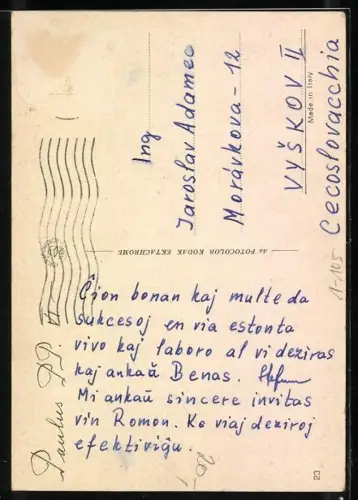 Ing
Jaroslav Adamec
Morávkova - 12
VYŠKOV II
Cecoslovacchia
Made in Italy
da FOTOCOLOR KODAK EKTACHROME
1-105
Ĉion bonan kaj multe da
sukcesoj en via estonta
vivo kaj laboro al vi deziras
kaj ankaŭ Benas. Stefano
Mi ankaŭ sincere invitas
vin Romon. Ke viaj deziroj
efektiviĝu.
Paulus PP. VI
20-
23